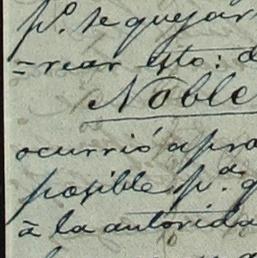 p.º se quejar
=rear esto: d
Noble
ocurrió apro
posible p.ª q
á la autorida